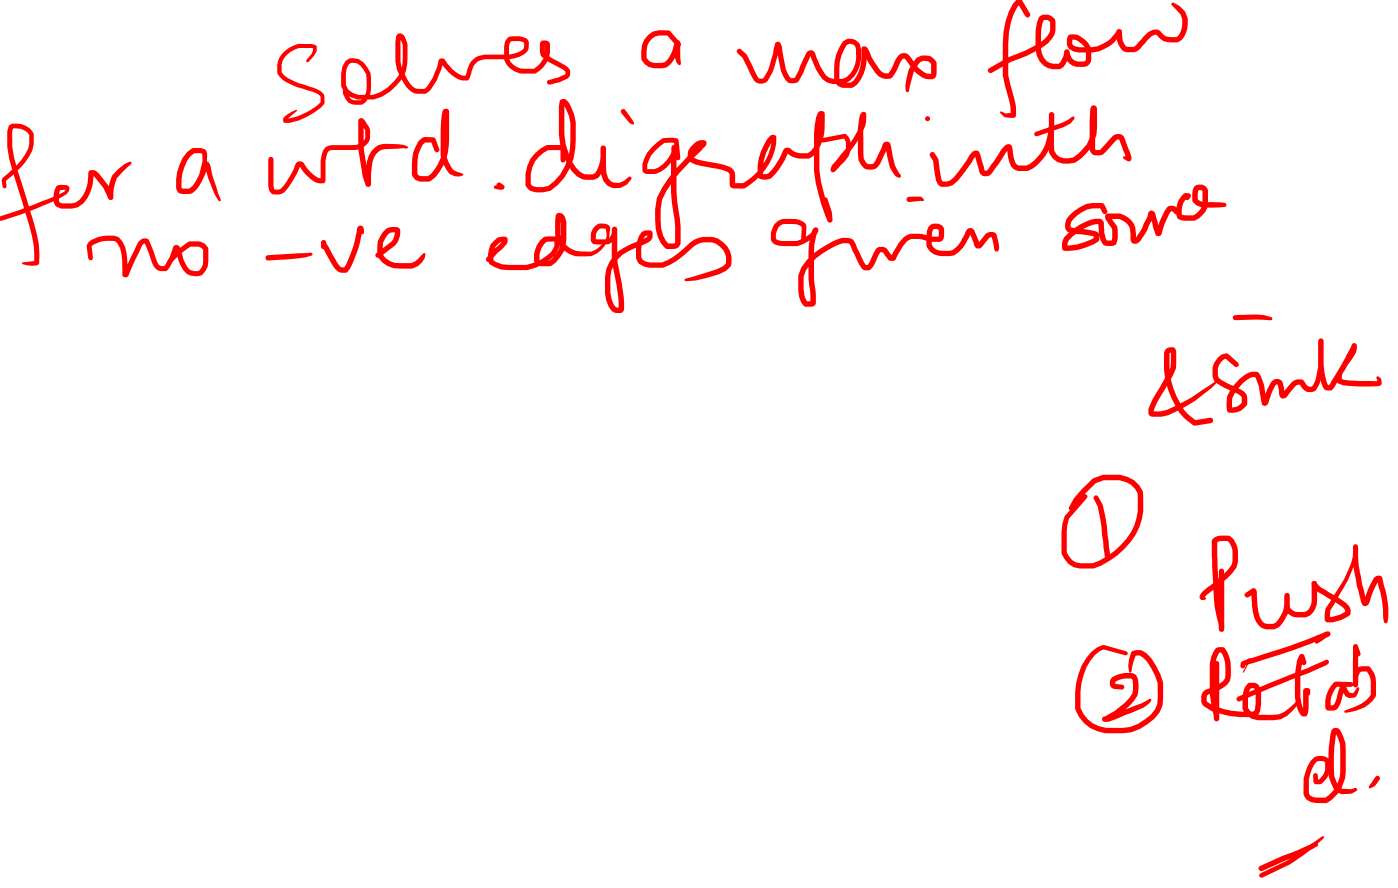 Solves a max flow
for a wtd. digraph with
no -ve edges given source
& sink
①
Push
②
d.